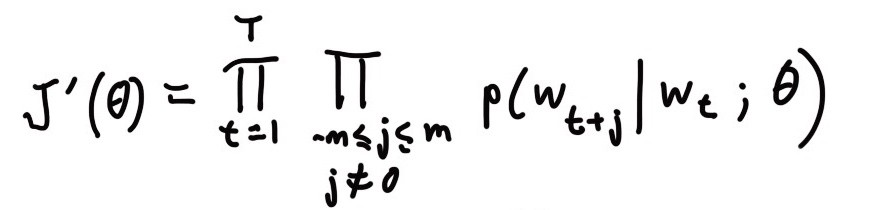 J'(θ) = ∏_{t=1}^{T} ∏_{-m≤j≤m, j≠0} p(w_{t+j} | w_t ; θ)